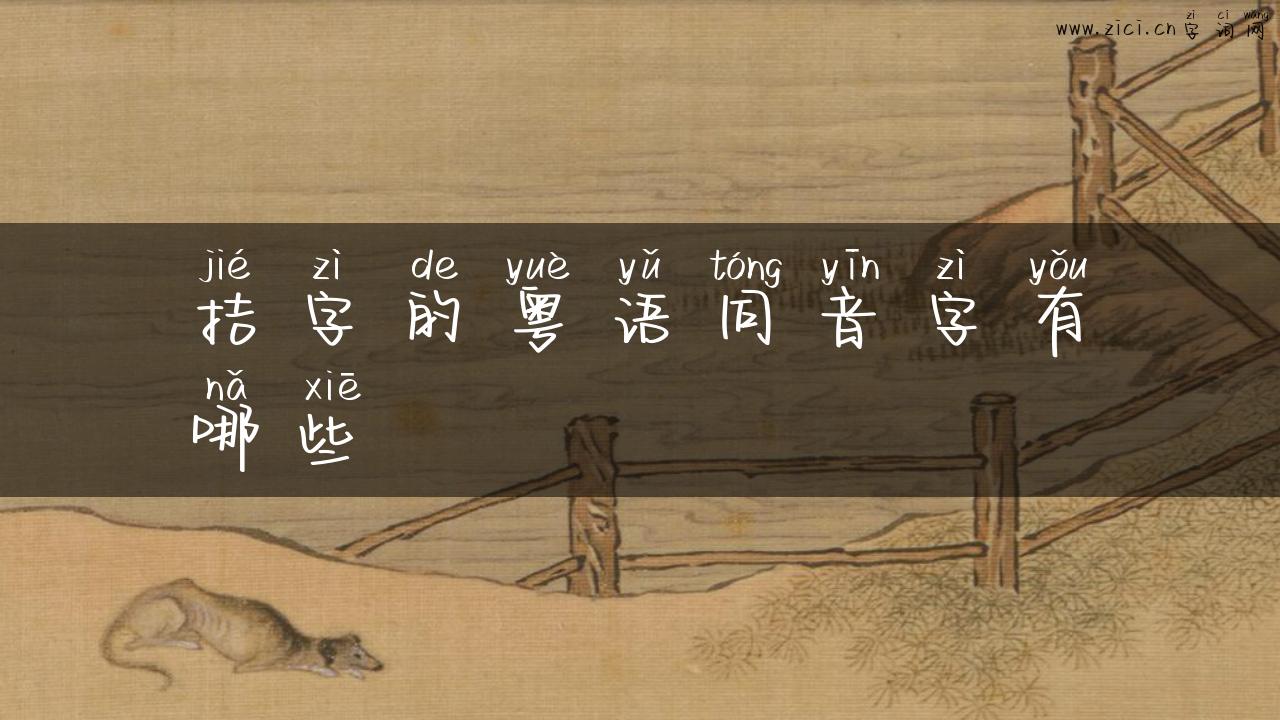 zì cí wǎng
www.zici.cn 字词网
jié zì de yuè yǔ tóng yīn zì yǒu
拮字的粤语同音字有
nǎ xiē
哪些